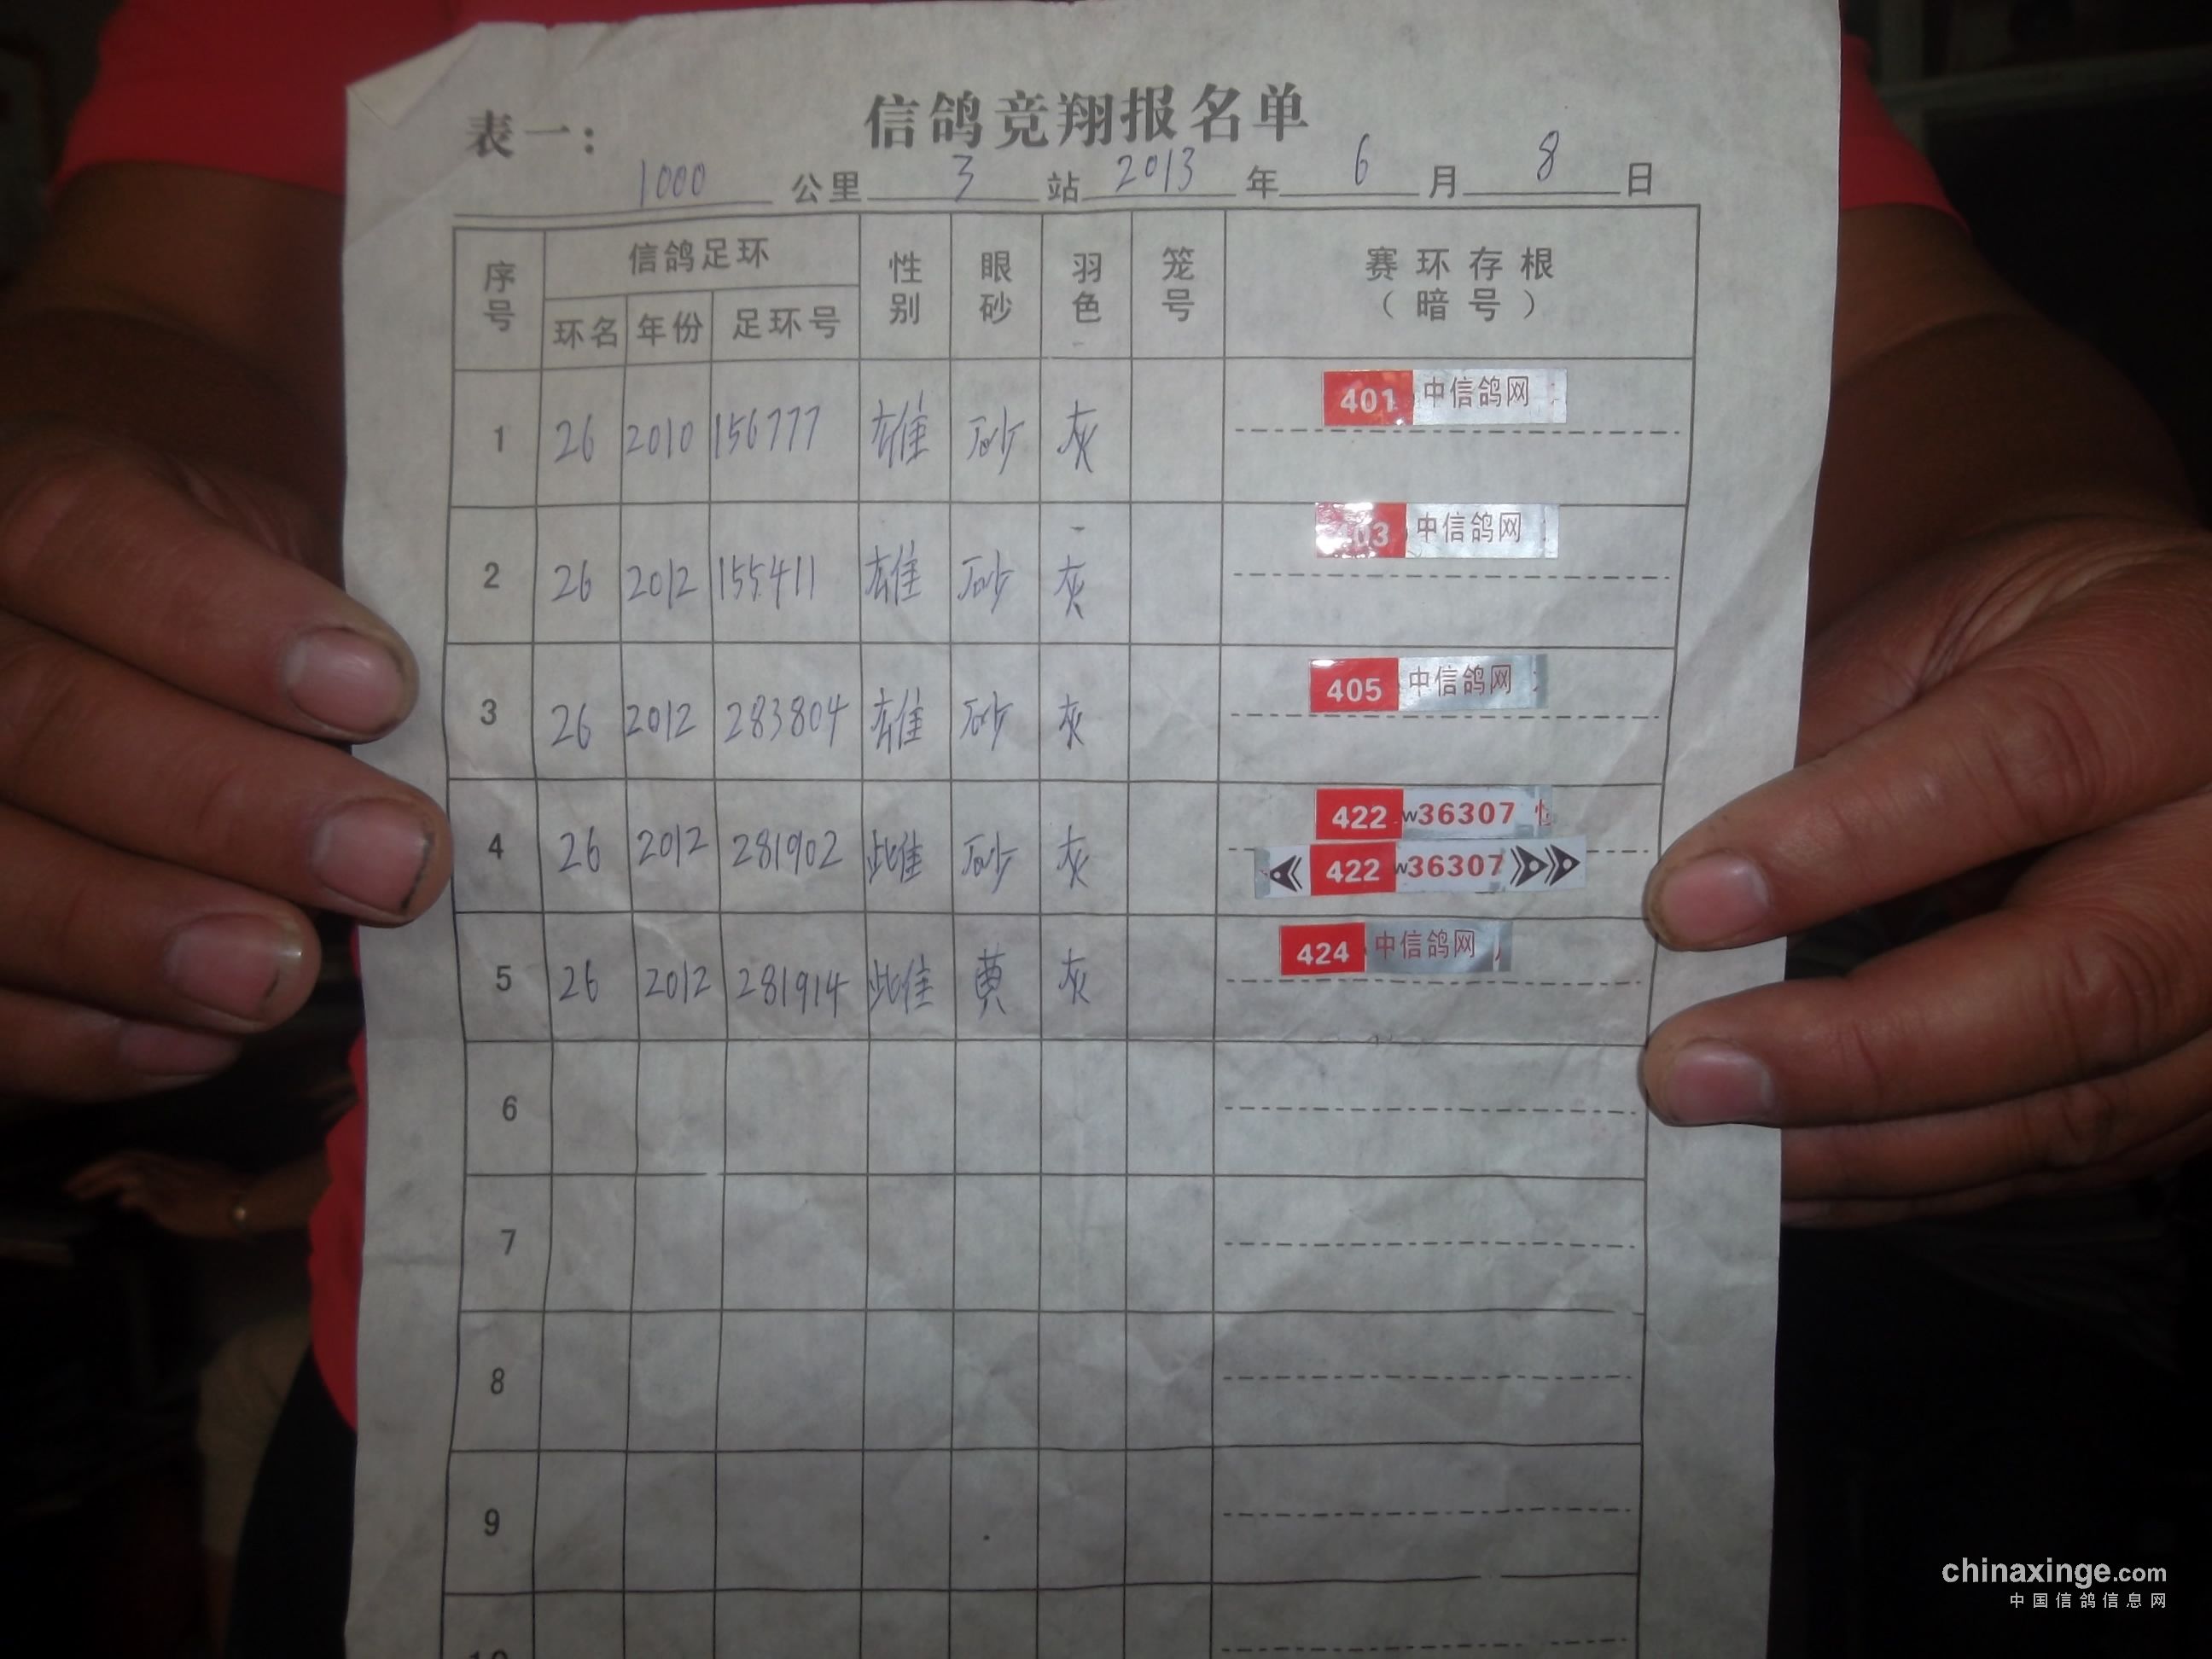 表一：
信鸽竞翔报名单
1000 公里 3 站 2013 年 6 月 8 日
序号 信鸽足环 性别 眼砂 羽色 笼号 赛环存根（暗号）
环名 年份 足环号
1 26 2010 156777 雄 砂 灰 401 中信鸽网
2 26 2012 155411 雄 砂 灰 403 中信鸽网
3 26 2012 283804 雄 砂 灰 405 中信鸽网
4 26 2012 281902 雌 砂 灰 422 w36307
422 w36307
5 26 2012 281914 雌 黄 灰 424 中信鸽网
6
7
8
9
10
chinaxinge.com
中国信鸽信息网